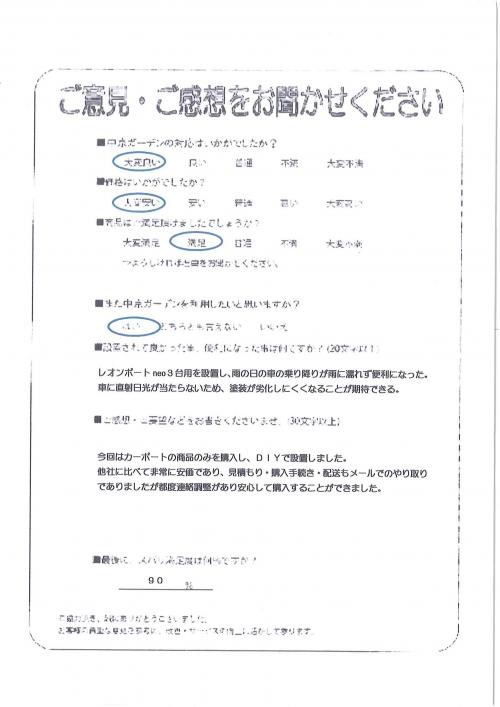 ご意見・ご感想をお聞かせください
■中京ガーデンの対応はいかがでしたか？
大変良い 良い 普通 不満 大変不満
■価格はいかがでしたか？
大変安い 安い 普通 高い 大変高い
■商品はご満足頂けましたでしょうか？
大変満足 満足 普通 不満 大変不満
つよろしければ理由をお聞かせください。
■また中京ガーデンを利用したいと思いますか？
はい どちらとも言えない いいえ
■設置されて良かった事、便利になった事は何ですか？(20文字以上)
レオンポートneo３台用を設置し、雨の日の車の乗り降りが雨に濡れず便利になった。
車に直射日光が当たらないため、塗装が劣化しにくくなることが期待できる。
■ご感想・ご要望などをお書きくださいませ。(30文字以上)
今回はカーポートの商品のみを購入し、ＤＩＹで設置しました。
他社に比べて非常に安価であり、見積もり・購入手続き・配送もメールでのやり取り
でありましたが都度連絡調整があり安心して購入することができました。
■最後に、ズバリ満足度は何％ですか？
９０ %
ご協力頂き、誠にありがとうございました。
お客様の貴重な意見を参考に、改善・サービスの向上に活かして参ります。